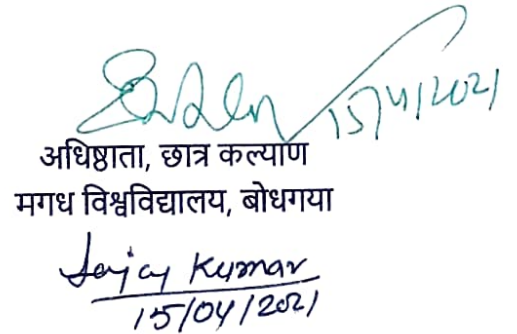 15/4/2021
अधिष्ठाता, छात्र कल्याण
मगध विश्वविद्यालय, बोधगया
Sanjay Kumar
15/04/2021